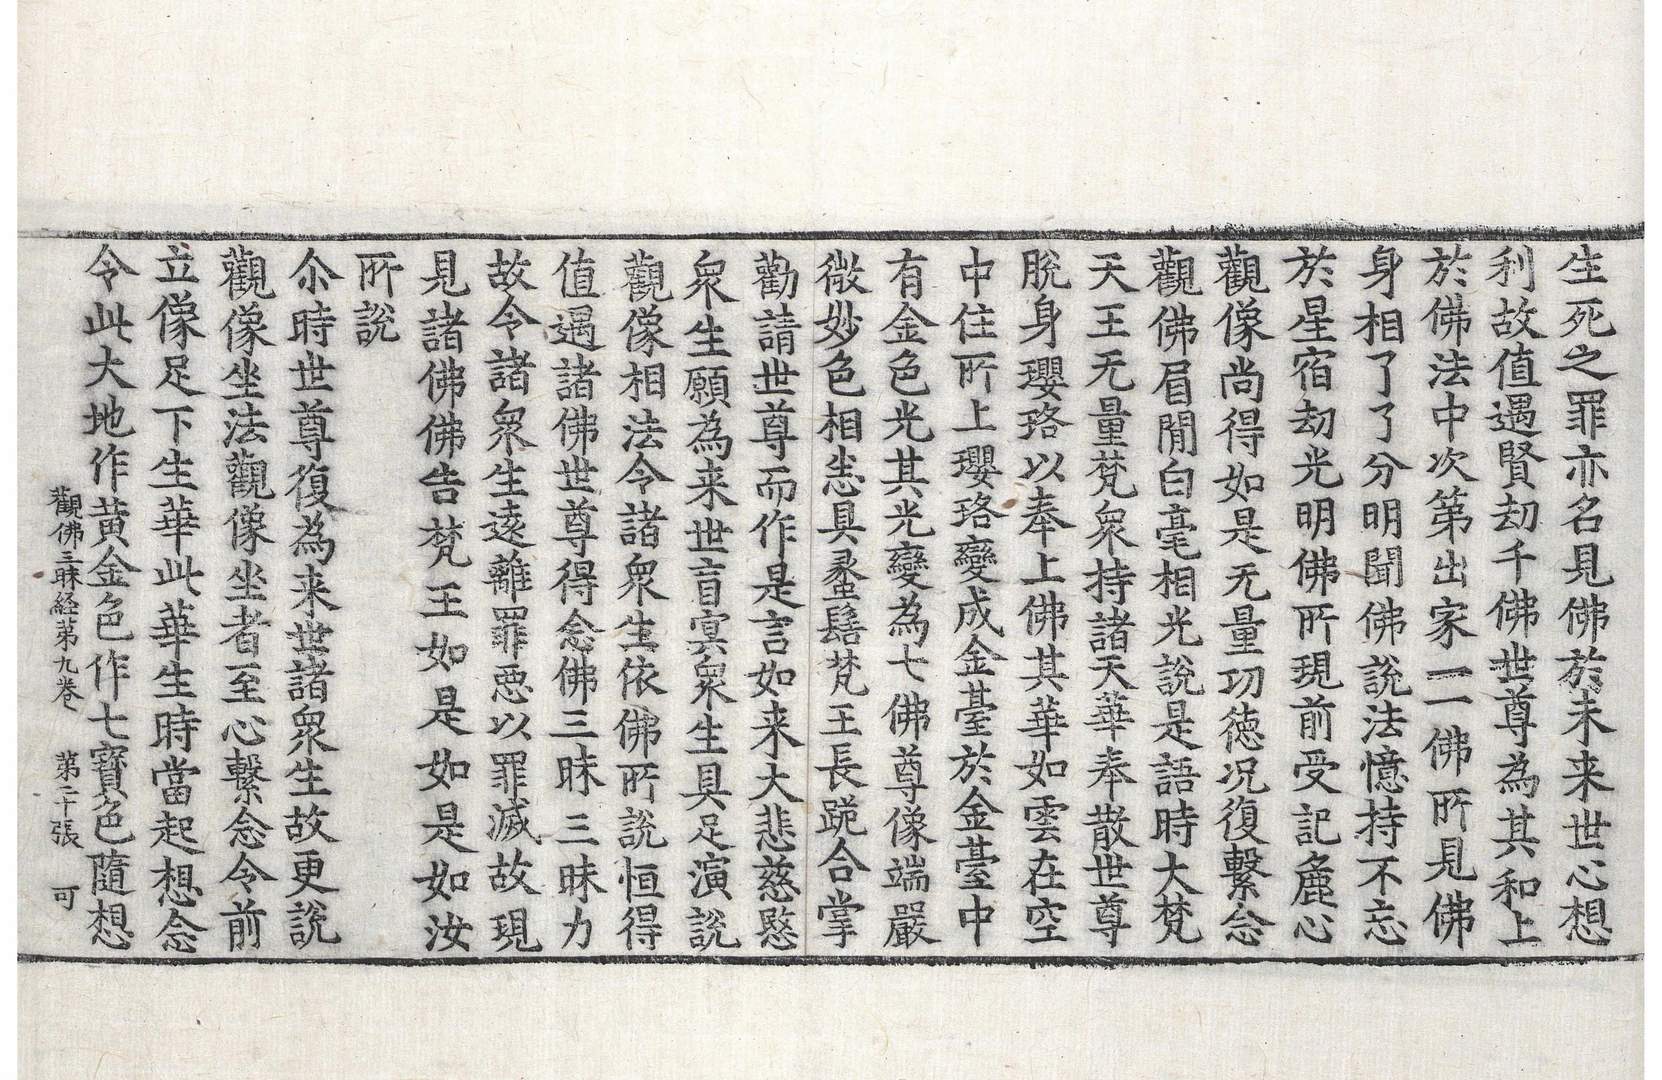 生死之罪亦名見佛於未来世心想
利故值遇賢劫千佛世尊為其和上
於佛法中次第出家一一佛所見佛
身相了了分明聞佛說法憶持不忘
於星宿劫光明佛所現前受記麁心
觀像尚得如是无量功德况復繫念
觀佛眉閒白毫相光說是語時大梵
天王无量梵衆持諸天華奉散世尊
脫身瓔珞以奉上佛其華如雲在空
中住所上瓔珞變成金臺於金臺中
有金色光其光變為七佛尊像端嚴
微妙色相悉具螺髻梵王長跪合掌
勸請世尊而作是言如来大悲慈愍
衆生願為来世盲冥衆生具足演說
觀像相法令諸衆生依佛所說恒得
值遇諸佛世尊得念佛三昧三昧力
故令諸衆生遠離罪惡以罪滅故現
見諸佛佛告梵王如是如是如汝
所說
尒時世尊復為来世諸衆生故更說
觀像坐法觀像坐者至心繫念令前
立像足下生華此華生時當起想念
令此大地作黄金色作七寶色隨想
觀佛三昧経第九卷 第二十張 可